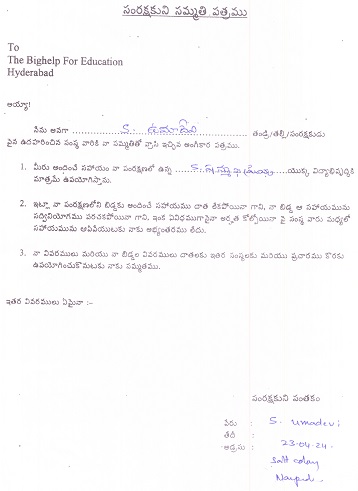 సంరక్షకుని సమ్మతి పత్రము
To
The Bighelp For Education
Hyderabad
అయ్యా!
నేను అనగా ...... S. ఉమాదేవి ...... తండ్రి/తల్లి/సంరక్షకుడు
పైన ఉదహరించిన సంస్థ వారికి నా సమ్మతితో వ్రాసి ఇచ్చిన అంగీకార పత్రము.
1. మీరు అందించే సహాయం నా సంరక్షణలో ఉన్న ...... యొక్క విద్యాభివృద్ధికి
మాత్రమే ఉపయోగిస్తాను.
2. ఇట్లా నా సంరక్షణలోని బిడ్డకు అందించే సహాయము దాత లేకపోయినా గాని, నా బిడ్డ ఆ సహాయమును
సద్వినియోగము పరచకపోయినా గాని, ఇంక ఏవిధముగానైనా అర్హత కోల్పోయినా పై సంస్థ వారు మధ్యలో
సహాయమును ఆపివేయుటకు నాకు అభ్యంతరము లేదు.
3. నా వివరములు మరియు నా బిడ్డల వివరములు దాతలకు ఇతర సంస్థలకు మరియు ప్రచారము కొరకు
ఉపయోగించుకొనుటకు నాకు సమ్మతము.
ఇతర వివరములు ఏమైనా :-
సంరక్షకుని సంతకం
పేరు : S. Umadevi
తేదీ :
అడ్రసు : 23-04-24
Salt colony